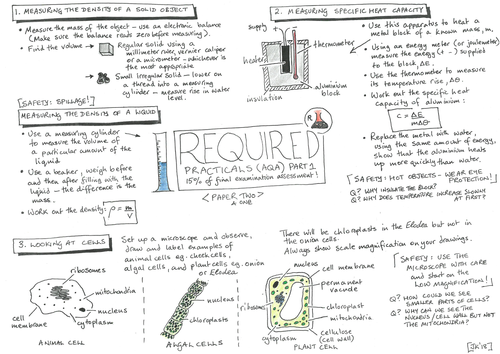 1. MEASURING THE DENSITY OF A SOLID OBJECT
• Measure the mass of the object - use an electronic balance
(Make sure the balance reads zero before measuring).
• Find the volume
Regular solid: using a
millimeter ruler, vernier caliper
or a micrometer - whichever is
the most appropriate
Small irregular solid - lower on
a thread into a measuring
cylinder - measure rise in water
level.
[SAFETY: SPILLAGE!]
MEASURING THE DENSITY OF A LIQUID
• Use a measuring cylinder
to measure the volume of
a particular amount of the
liquid
• Use a beaker, weigh before
and then after filling with the
liquid - the difference is the
mass.
• Work out the density:
ρ = m
V
REQUIRED
PRACTICALS (AQA) PART 1
15% of final examination assessment!
< PAPER TWO >
& ONE
R
2. MEASURING SPECIFIC HEAT CAPACITY
supply
+ -
thermometer
heater
aluminium
block
insulation
• Use this apparatus to heat a
metal block of a known mass, m.
• Using an energy meter (or joulemeter)
measure the energy (+ -) supplied
to the block, ΔE.
• Use the thermometer to measure
its temperature rise, Δθ.
• Work out the specific heat
capacity of aluminium:
c = ΔE
mΔθ
• Replace the metal with water,
using the same amount of energy,
show that the aluminium heats
up more quickly than water.
[SAFETY: HOT OBJECTS - WEAR EYE
PROTECTION!]
Q? WHY INSULATE THE BLOCK?
Q? WHY DOES TEMPERATURE INCREASE SLOWLY
AT FIRST?
3. LOOKING AT CELLS
Set up a microscope and observe,
draw and label examples of
animal cells eg. cheek cells,
algal cells, and plant cells eg. onion
or Elodea
There will be chloroplasts in the Elodea but not in
the onion cells.
Always show scale magnification on your drawings.
ribosomes
mitochondria
nucleus
cytoplasm
cell
membrane
ANIMAL CELL
nucleus
chloroplasts
ALGAL CELLS
nucleus
cell membrane
permanent
vacuole
ribosomes
chloroplast
mitochondria
cytoplasm
cellulose
(cell wall)
PLANT CELL
[SAFETY: USE THE
MICROSCOPE WITH CARE
and start on the
LOW MAGNIFICATION!]
Q? HOW COULD WE SEE
SMALLER PARTS OF CELLS?
Q? WHY CAN WE SEE THE
NUCLEUS / CELL WALL BUT NOT
THE MITOCHONDRIA?